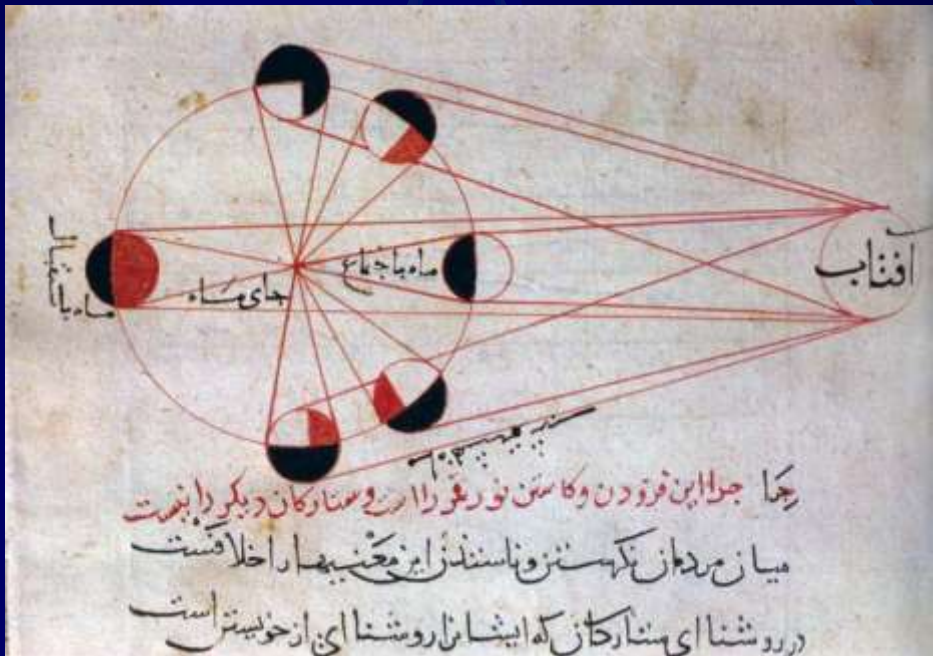 افتاب
ماه باجتماع
جای مَاه
ماه باستقبال
جرا این فزودن و کاستن نور قمر را و ستارکان دیکر را نیست
میان مردمان این را خلافست
در روشنا ای ستارکان که ایشانرا روشنا ای از خویشتن است